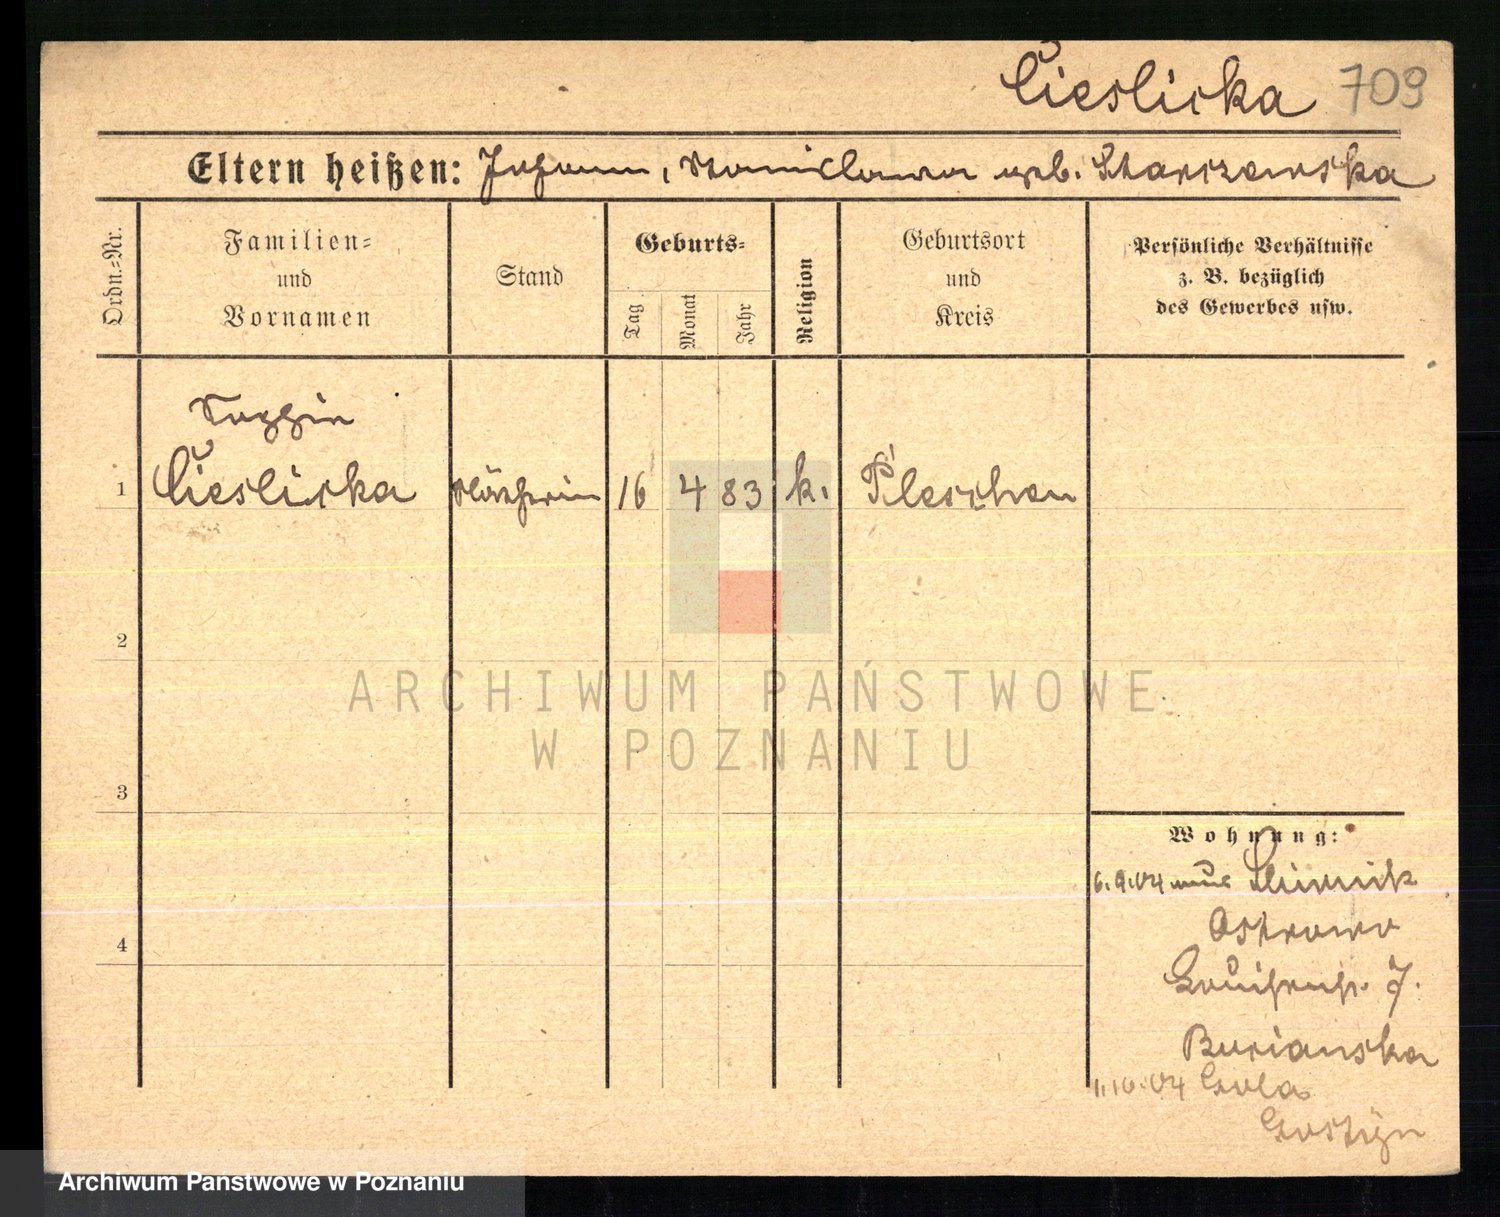 Cieslicka 709
Eltern heißen: Johann, Stanislawa geb. Starczewska
Ordn.-Nr.
Familien-
und
Vornamen
Stand
Geburts-
Tag
Monat
Jahr
Religion
Geburtsort
und
Kreis
Persönliche Verhältnisse
z. B. bezüglich
des Gewerbes usw.
1 Cieslicka Näherin 16 4 83 k. Pleschen
2
3
4
Wohnung:
6.9.04
Ostrowo
Burianska
1.10.04 Gola
Gostyn
ARCHIWUM PAŃSTWOWE
W POZNANIU
Archiwum Państwowe w Poznaniu